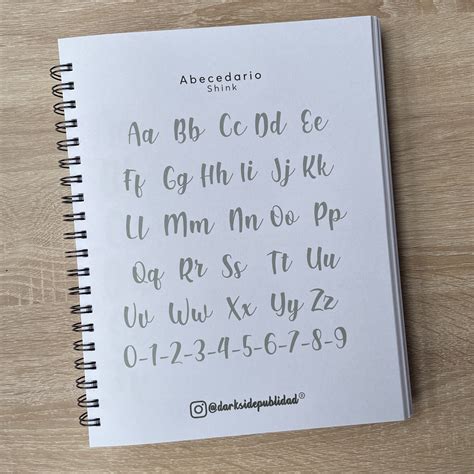 Abecedario
Shink
Aa Bb Cc Dd Ee
Ff Gg Hh Ii Jj Kk
Ll Mm Nn Oo Pp
Qq Rr Ss Tt Uu
Vv Ww Xx Yy Zz
0-1-2-3-4-5-6-7-8-9
@darksidepublidad®